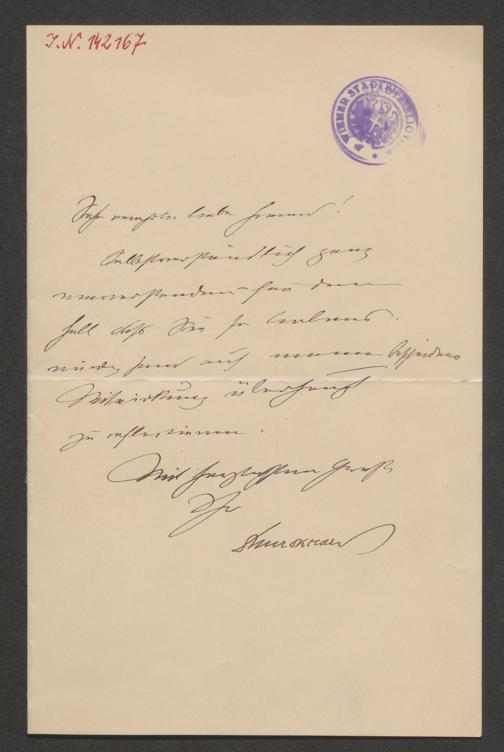 J.N. 142167
WIENER STADTBIBLIOTHEK
Sehr verehrter lieber Freund!
Selbstverständlich ganz
einverstanden für den
Fall daß Sie so
auf meine bescheidene
Mitwirkung überhaupt
zu reflectieren.
Mit herzlichstem Gruß
Ihr